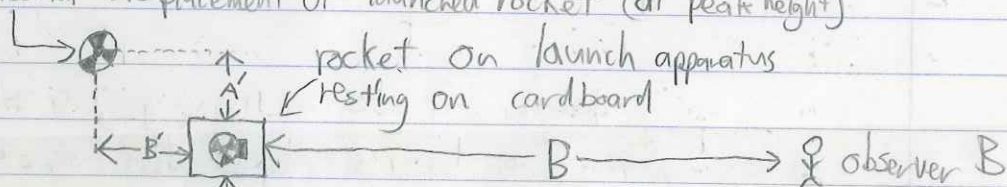 placement of launched rocket (at peak height)
A'
rocket on launch apparatus
resting on cardboard
B'
B
observer B